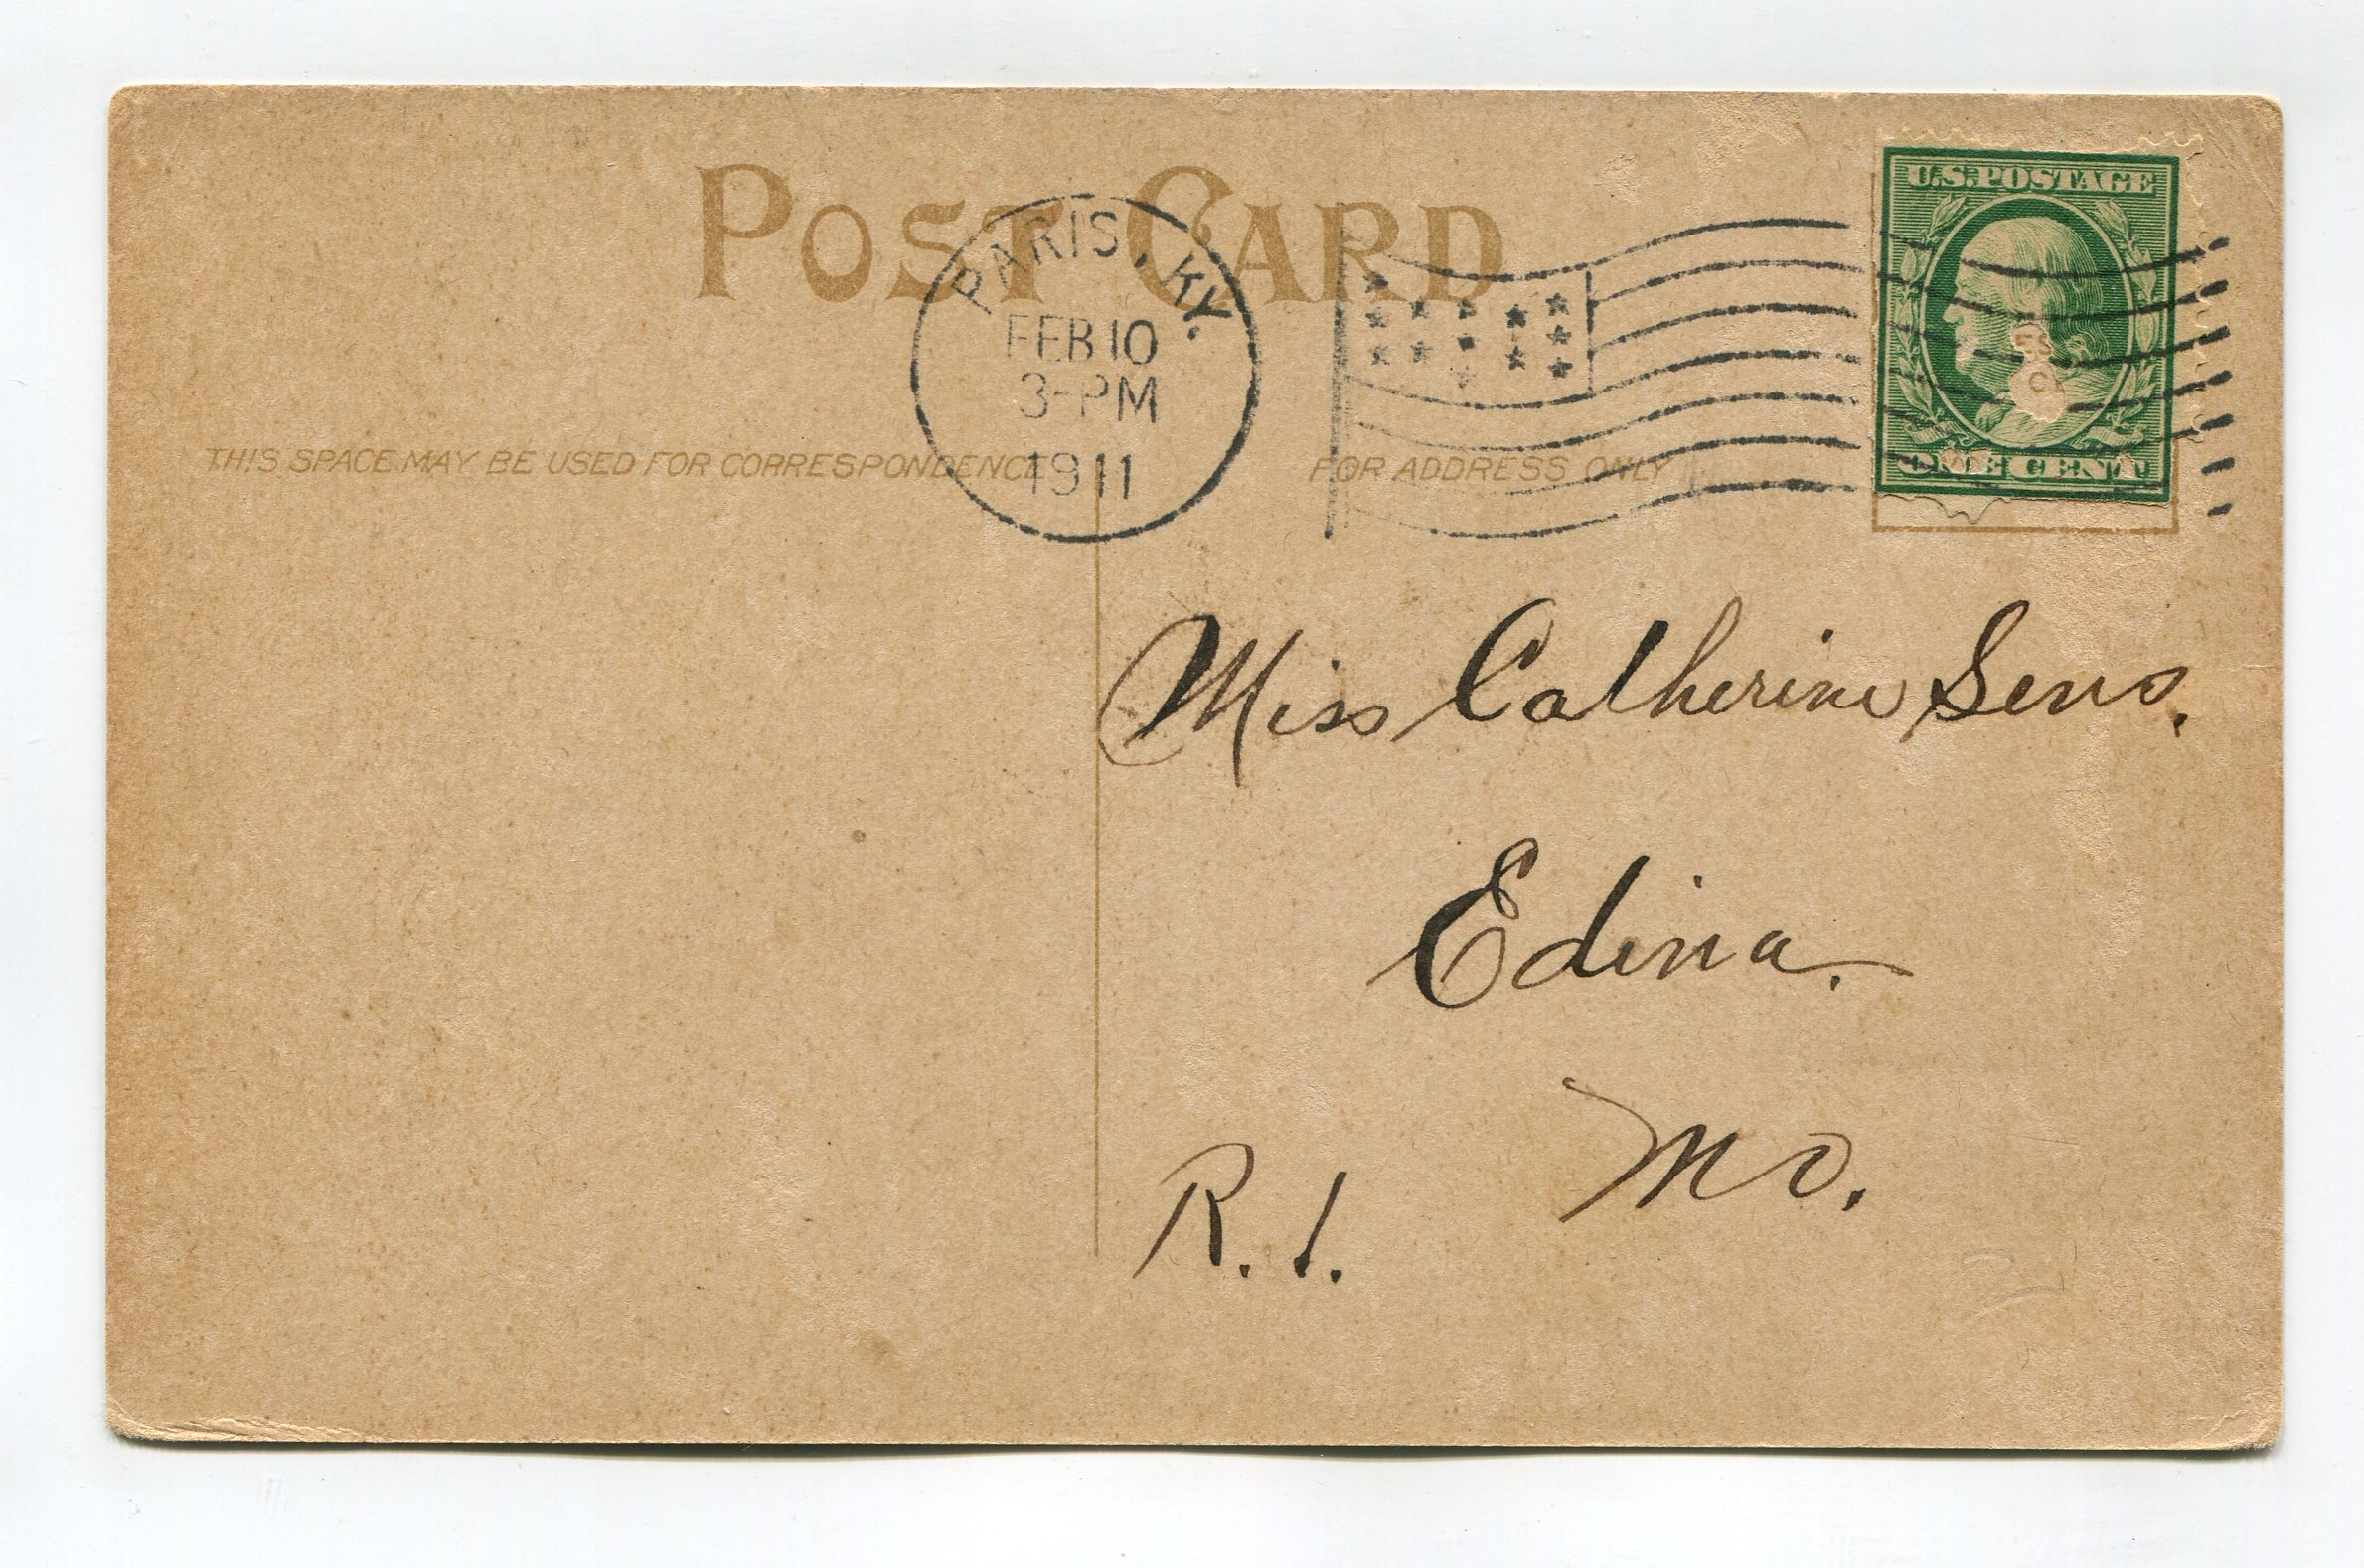 POST CARD
PARIS, KY.
FEB 10
3-PM
1911
U.S. POSTAGE
ONE CENT
THIS SPACE MAY BE USED FOR CORRESPONDENCE
FOR ADDRESS ONLY
Miss Catherine Sens.
Edina.
Mo.
R. 1.